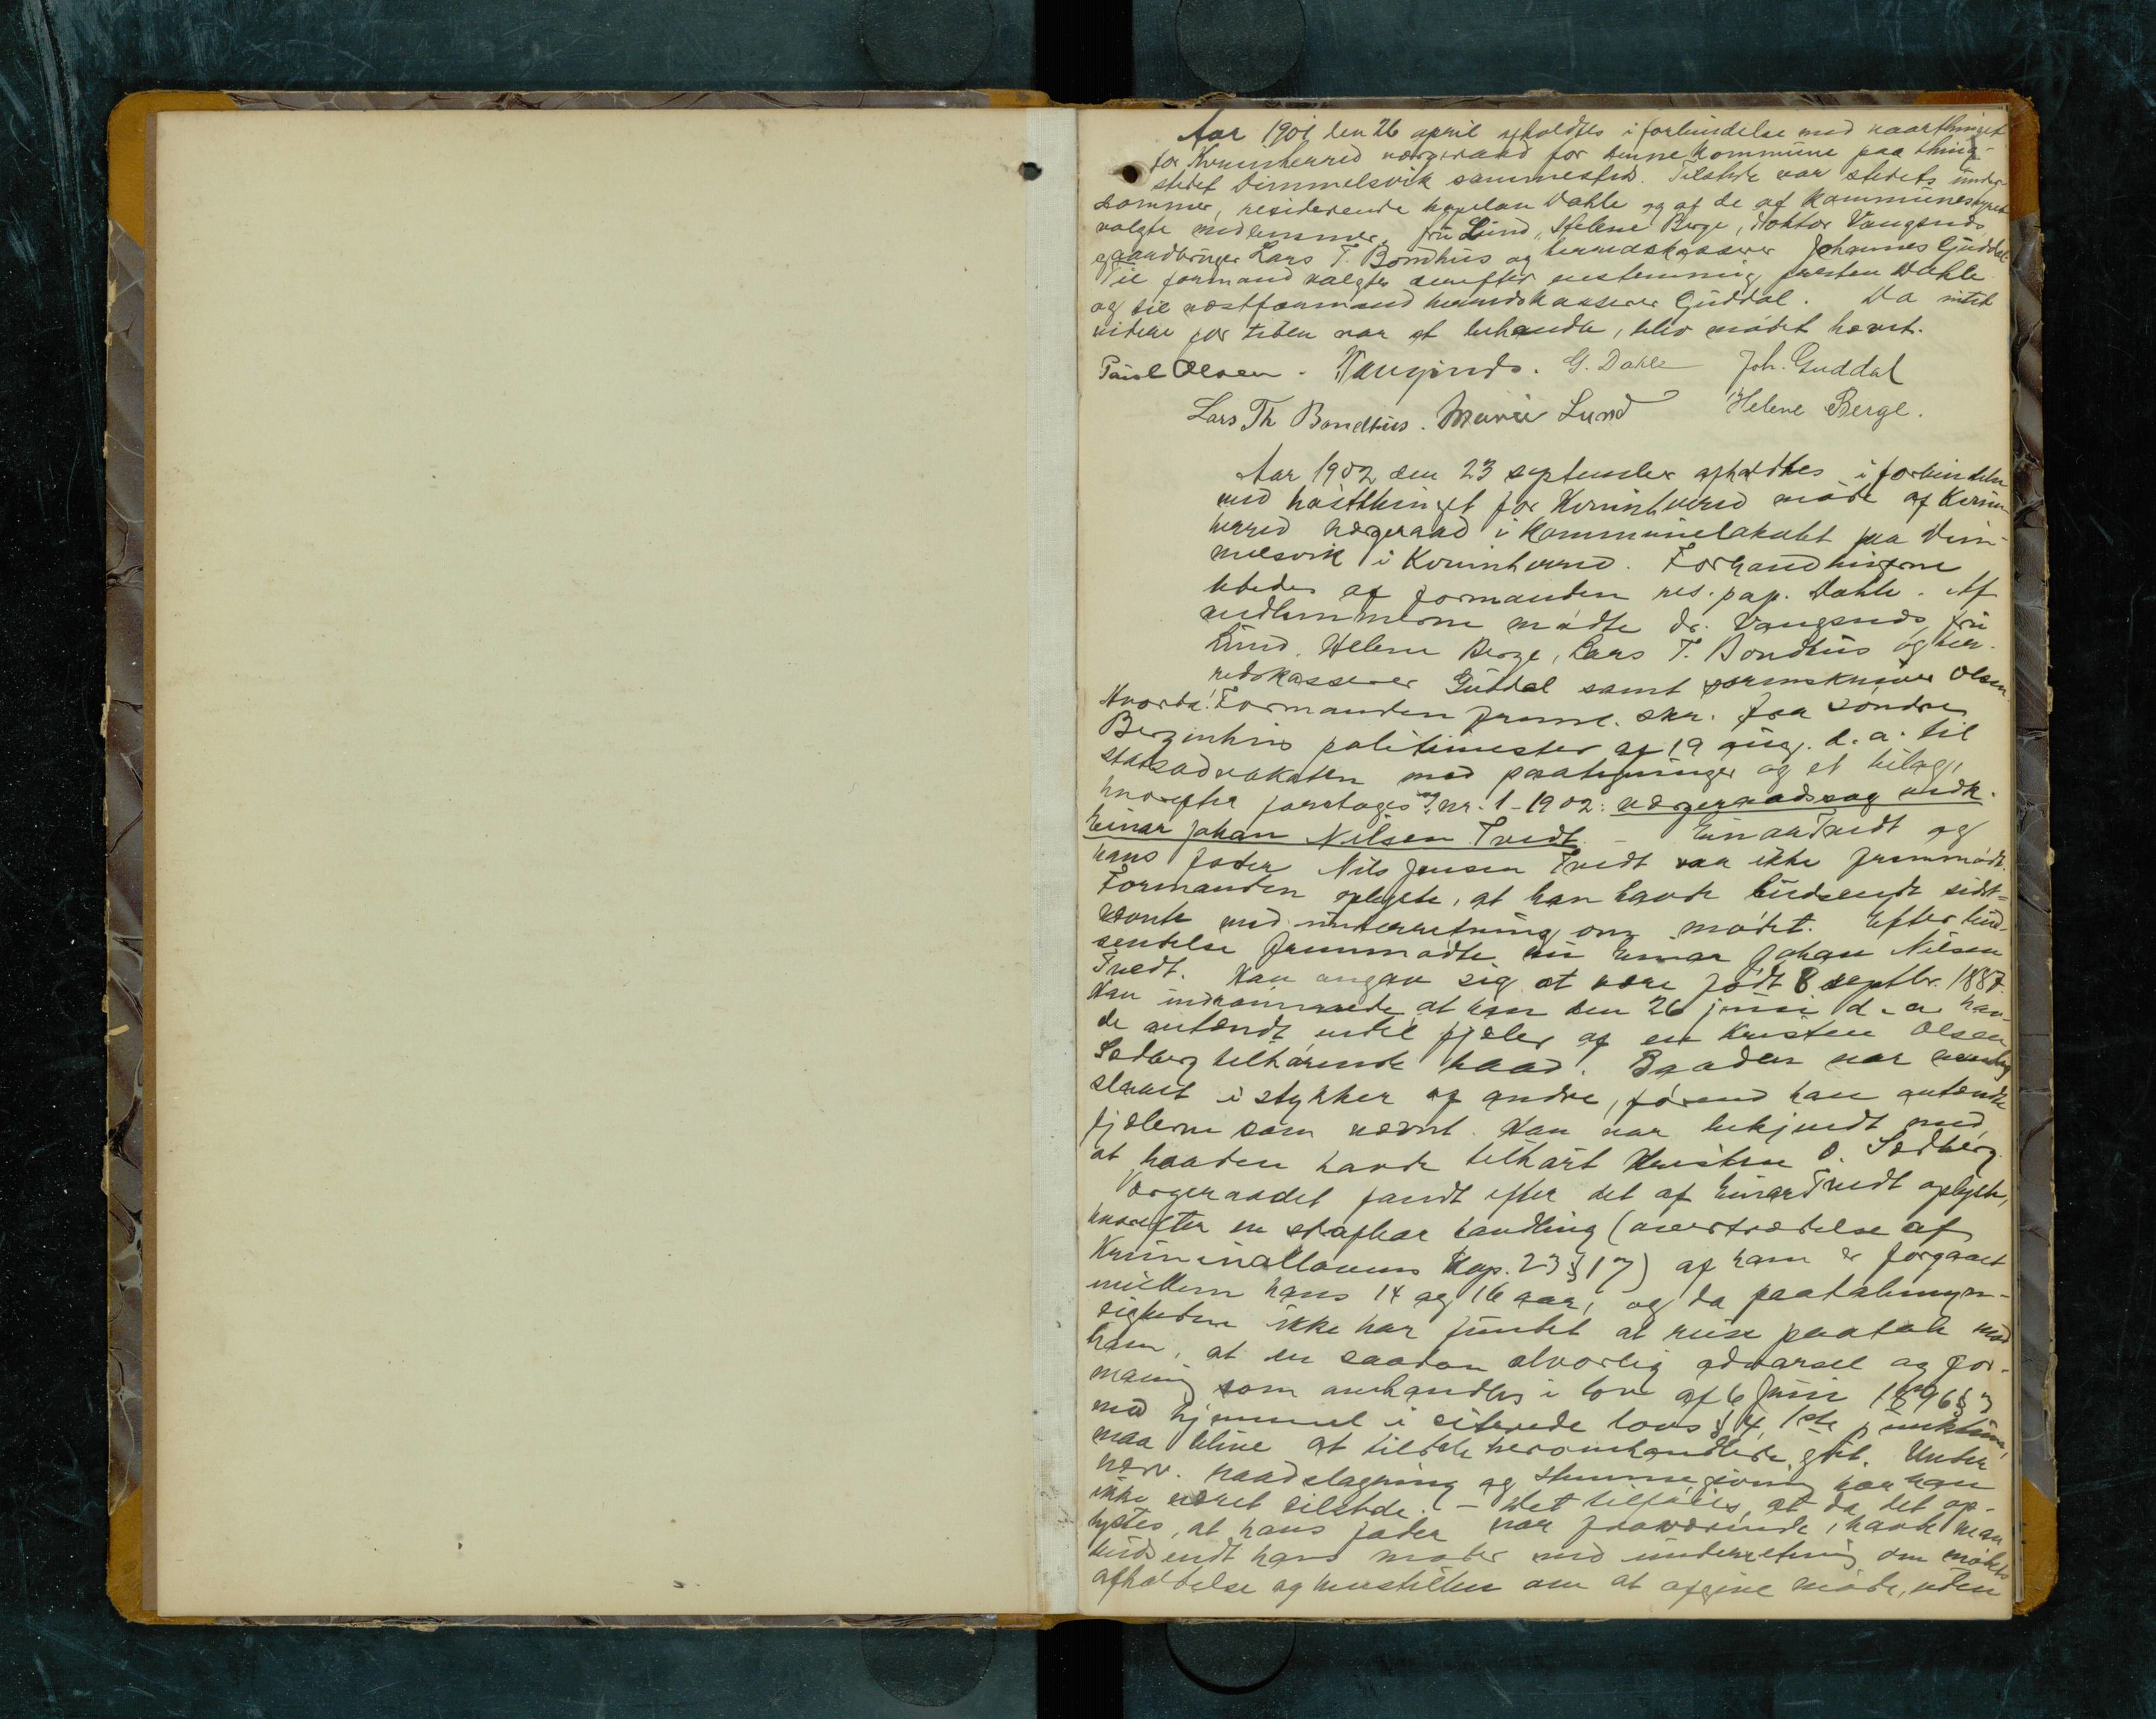 Aar 1901 den 26 april afholdtes i forbindelse med vaarthinget
for Kvinnherred vergeraad for denne kommune paa thing-
stedet Dimmelsvik sammested. Tilstede var stedets under-
dommer, residerende kapelan Dahle og af de af kommunestyret
valgte medlemmer fru Lund, Helene Berge, doktor Vangsnes,
gaardbruger Lars T. Bondhus og herredskasserer Johannes Guddal
Til formand valgtes derefter enstemmig presten Dahle
og til næstformand herredskasserer Guddal. Da intet
videre for tiden var at behandle, blev mødet hævet.
Paul Olsen. Vangsnes. G. Dahle Joh. Guddal
Lars Th Bondhus. Marie Lund Helene Berge.
Aar 1902 den 23 september afholdtes i forbindelse
med høstthinget for Kvinnherred møde af Kvinn-
herred vergeraad i kommunelokalet paa Dim-
melsvik i Kvinnherred. Forhandlingerne
lededes af formanden res. kap. Dahle. Af
medlemmerne mødte dr. Vangsnes, fru
Lund, Helene Berge, Lars T. Bondhus og her-
redskasserer Guddal samt sorenskriver Olsen
Hvorda: Formanden freml. skr. fra Søndre
Bergenhus politimester af 19 aug. d. a. til
statsadvokaten med paategninger og et bilag,
hvorefter foretoges sag nr. 1-1902: vergeraadssag vedk.
Einar Johan Nilsen Tvedt. - Einar Tvedt og
hans fader Nils Jensen Tvedt var ikke fremmødt.
Formanden oplyste, at han havde budsendt sidst-
nævnte med underretning om mødet. Efter bud-
sendelse fremmødte nu Einar Johan Nilsen
Tvedt. Han angav sig at være født 8 septbr. 1887.
Han indrømmede, at han den 26 juni d. a. hav-
de antændt endel fjæler af en Kristen Olsen
Sædberg tilhørende baad. Baaden var
slaaet i stykker af andre, førend han antændte
fjælerne som nævnt. Han var bekjendt med,
at baaden havde tilhørt Kristen O. Sædberg.
Vergeraadet fandt efter det af Einar Tvedt oplyste,
hvorefter en strafbar handling (overtrædelse af
Kriminallovens Kap. 23 § 17) af ham er forgaaet
mellem hans 14 og 16 aar, og da paatalemyn-
digheden ikke har fundet at reise paatale mod
ham, at en saadan alvorlig advarsel og for-
maning som omhandles i lov af 6 juni 1896 §
med hjemmel i citerede lovs § 4, 1ste punktum,
maa blive at tildele heromhandlede gut. Under
nærv. raadslagning og stemmegivning har han
ikke været tilstede. - Det tilføies, at da det op-
lystes, at hans fader var fraværende, havde man
budsendt hans moder med underretning om mødets
afholdelse og henstillen om at afgive møde, uden